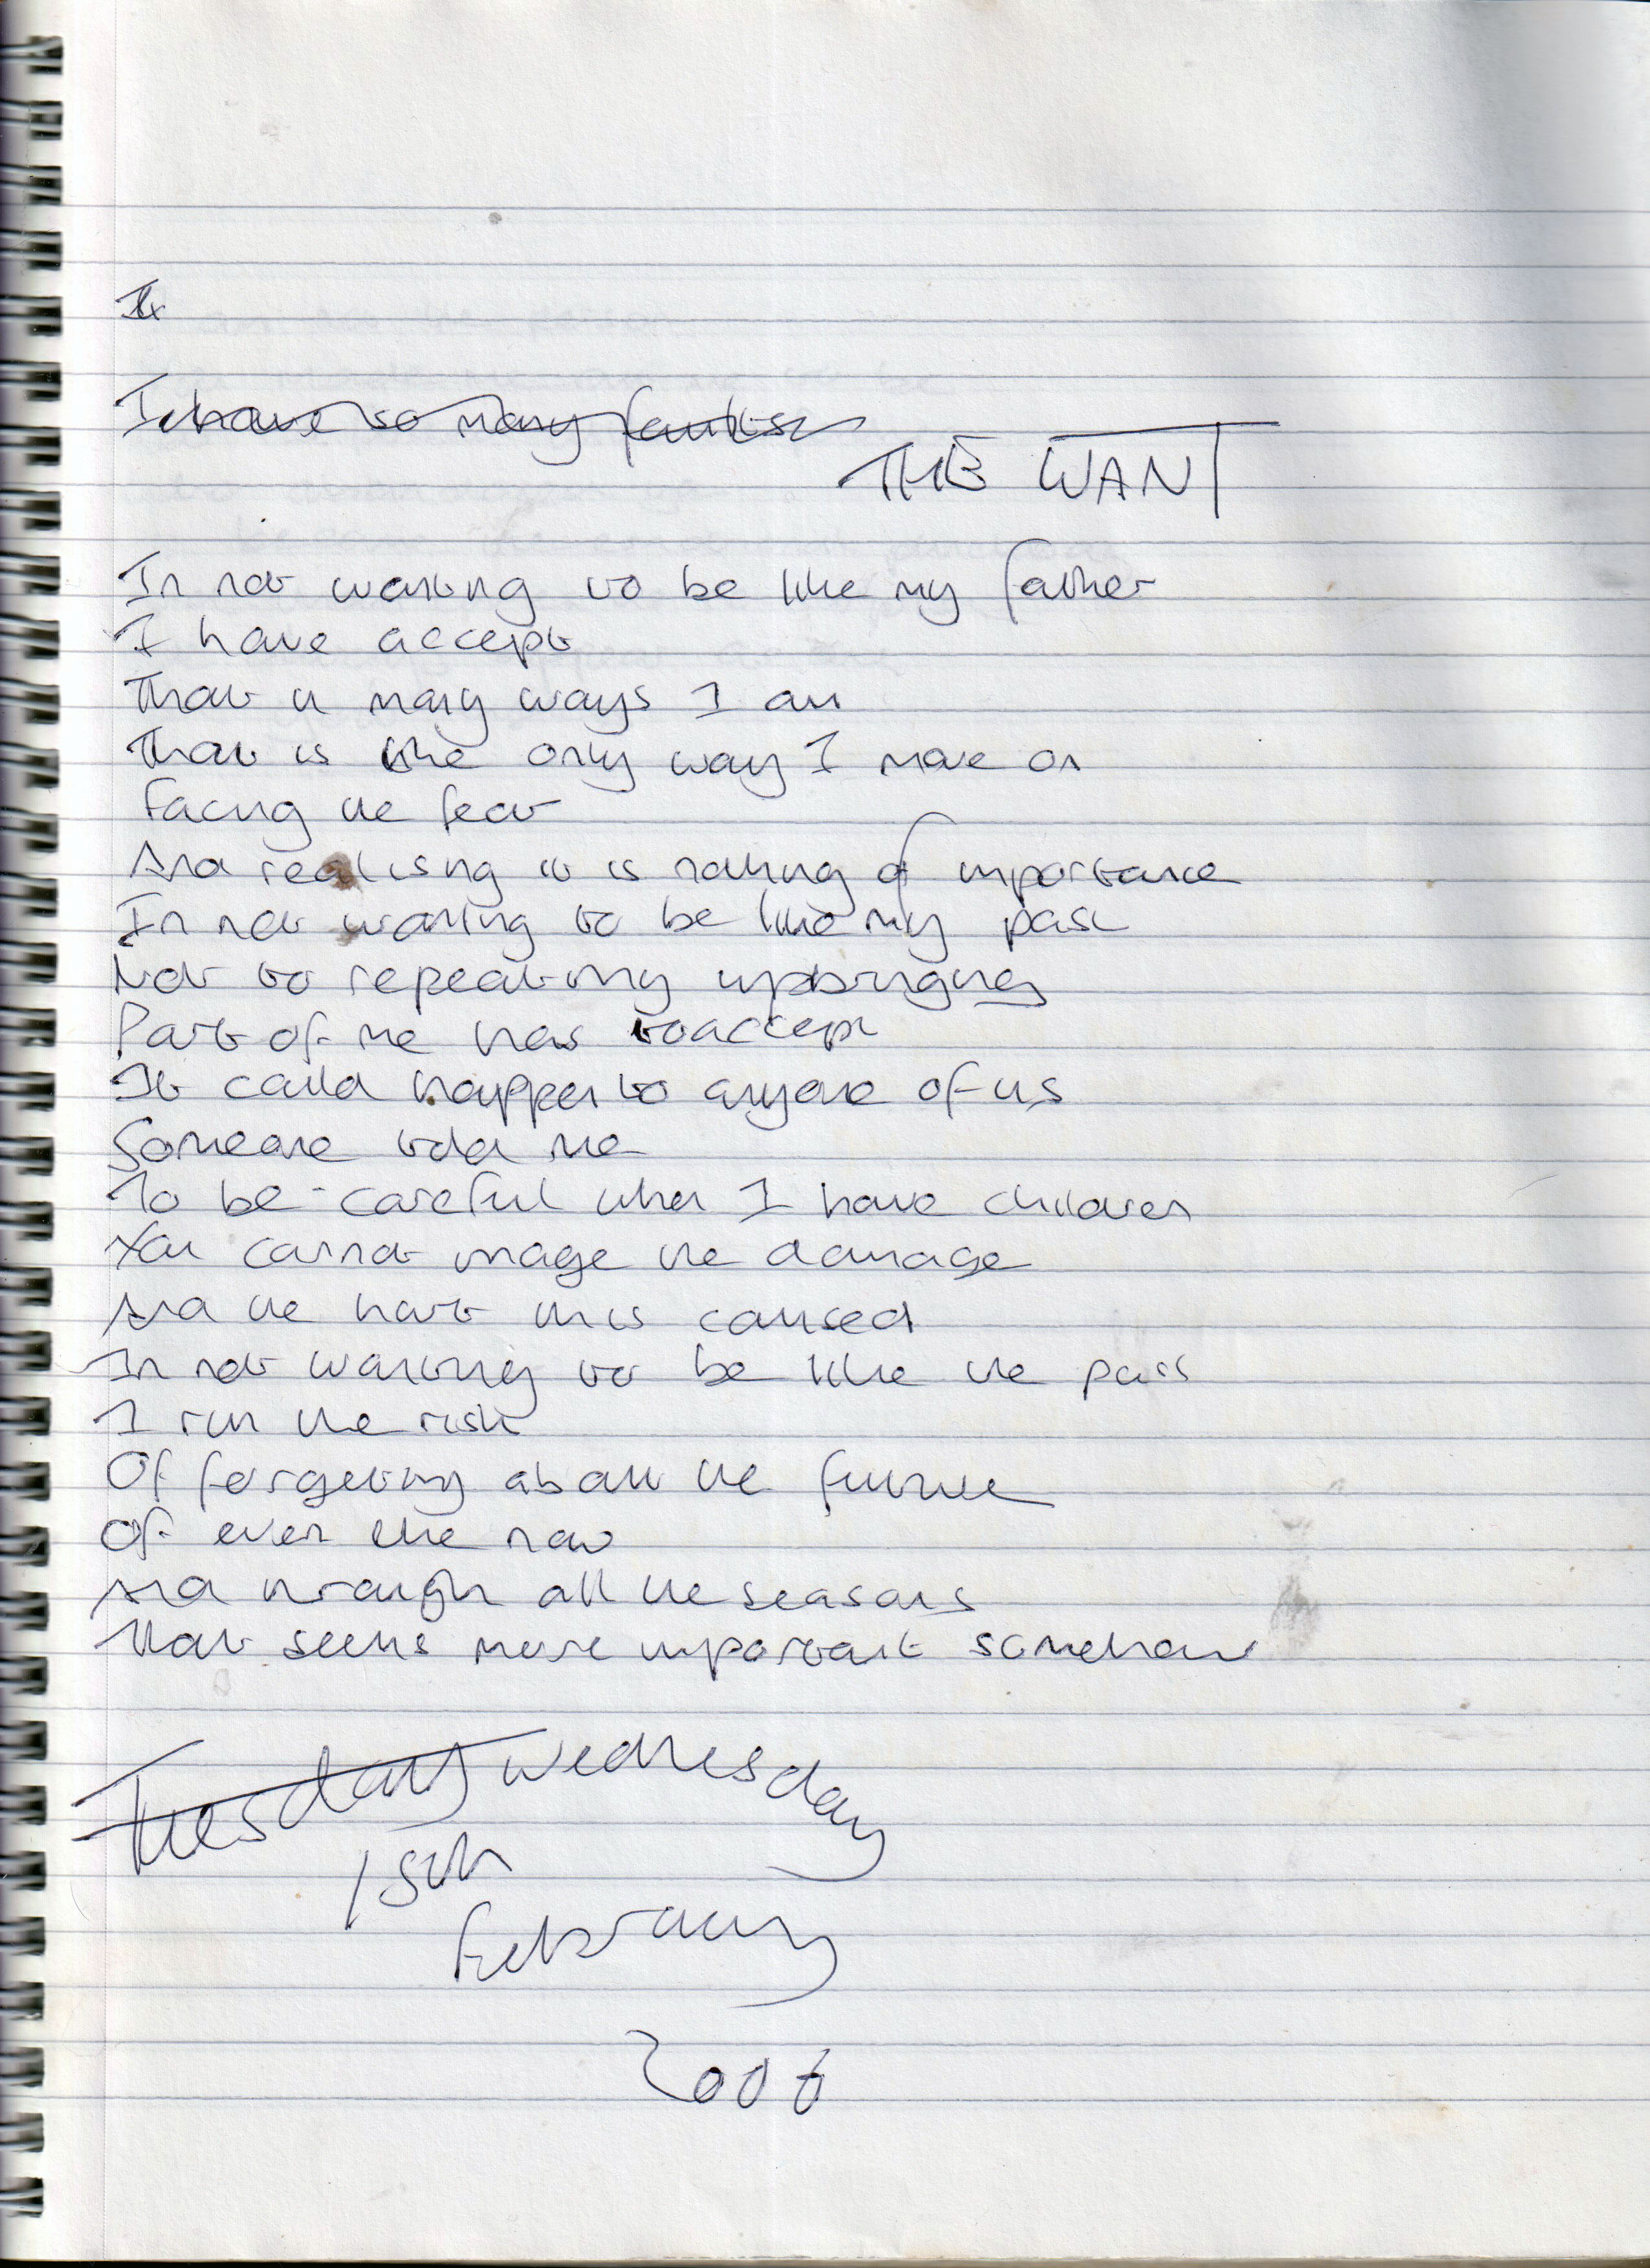 I have so many faults
THE WANT
In not wanting to be like my father
I have accept
That in many ways I am
That is the only way I move on
Facing the fear
And realising it is nothing of importance
In not wanting to be like my past
Not to repeat my upbringing
Part of me has to accept
It could happen to anyone of us
Someone told me
To be careful when I have children
You cannot image the damage
And the hurt this caused
In not wanting to be like the past
I run the risk
Of forgetting about the future
Of even the now
And through all the seasons
That seems more important somehow
Tuesday Wednesday
15th
February
2006